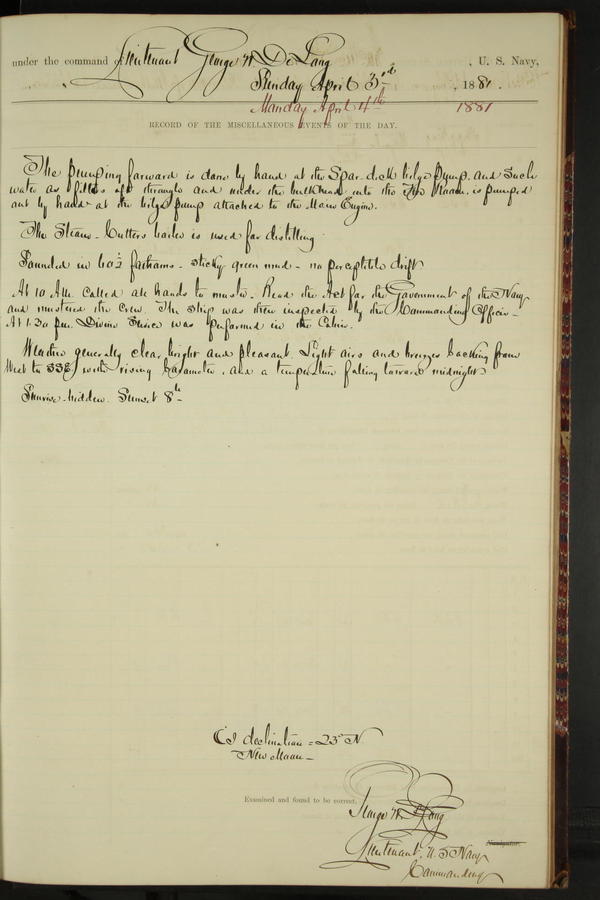 under the command of Lieutenant George W. De Long, U. S. Navy,
Sunday April 3rd, 1881.
Monday April 4th 1881
RECORD OF THE MISCELLANEOUS EVENTS OF THE DAY.
The pumping forward is done by hand at the Spar deck bilge pump, and such
water as filters aft through and under the bulkhead into the Fire Room, is pumped
out by hand at the bilge pump attached to the Main Engine.
The Steam-Cutters boiler is used for distilling
Sounded in 60½ fathoms - sticky green mud - no perceptible drift
At 10 AM. called all hands to muster. Read the Act for the Government of the Navy
and mustered the crew. The ship was then inspected by the Commanding Officer -
At 1.30 pm. Divine Service was performed in the Cabin.
Weather generally clear, bright and pleasant. Light airs and breezes backing from
West to SSE, with rising barometer, and a temperature falling toward midnight
Sunrise - hidden. Sunset 8h -
declination = 23° N
New Moon -
Examined and found to be correct.
George W. De Long
Navigator.
Lieutenant, U.S Navy
Commanding